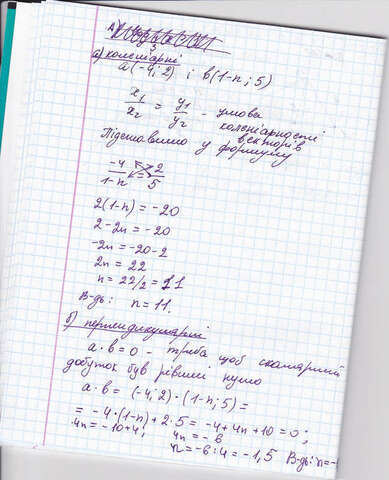 а) коленіарні
a(-4; 2) і b(1-n; 5)
x₁/x₂ = y₁/y₂ - умова
коленіарності
векторів
Підставимо у формулу
-4/1-n = 2/5
2(1-n) = -20
2-2n = -20
-2n = -20-2
2n = 22
n = 22/2 = 11
В-дь: n = 11.
б) перпендикулярні
a·b = 0 - треба щоб скалярний
добуток був рівний нулю
a·b = (-4; 2)·(1-n; 5) =
= -4·(1-n) + 2·5 = -4+4n+10 = 0;
4n = -10+4; 4n = -6
n = -6:4 = -1,5 В-дь: n = -